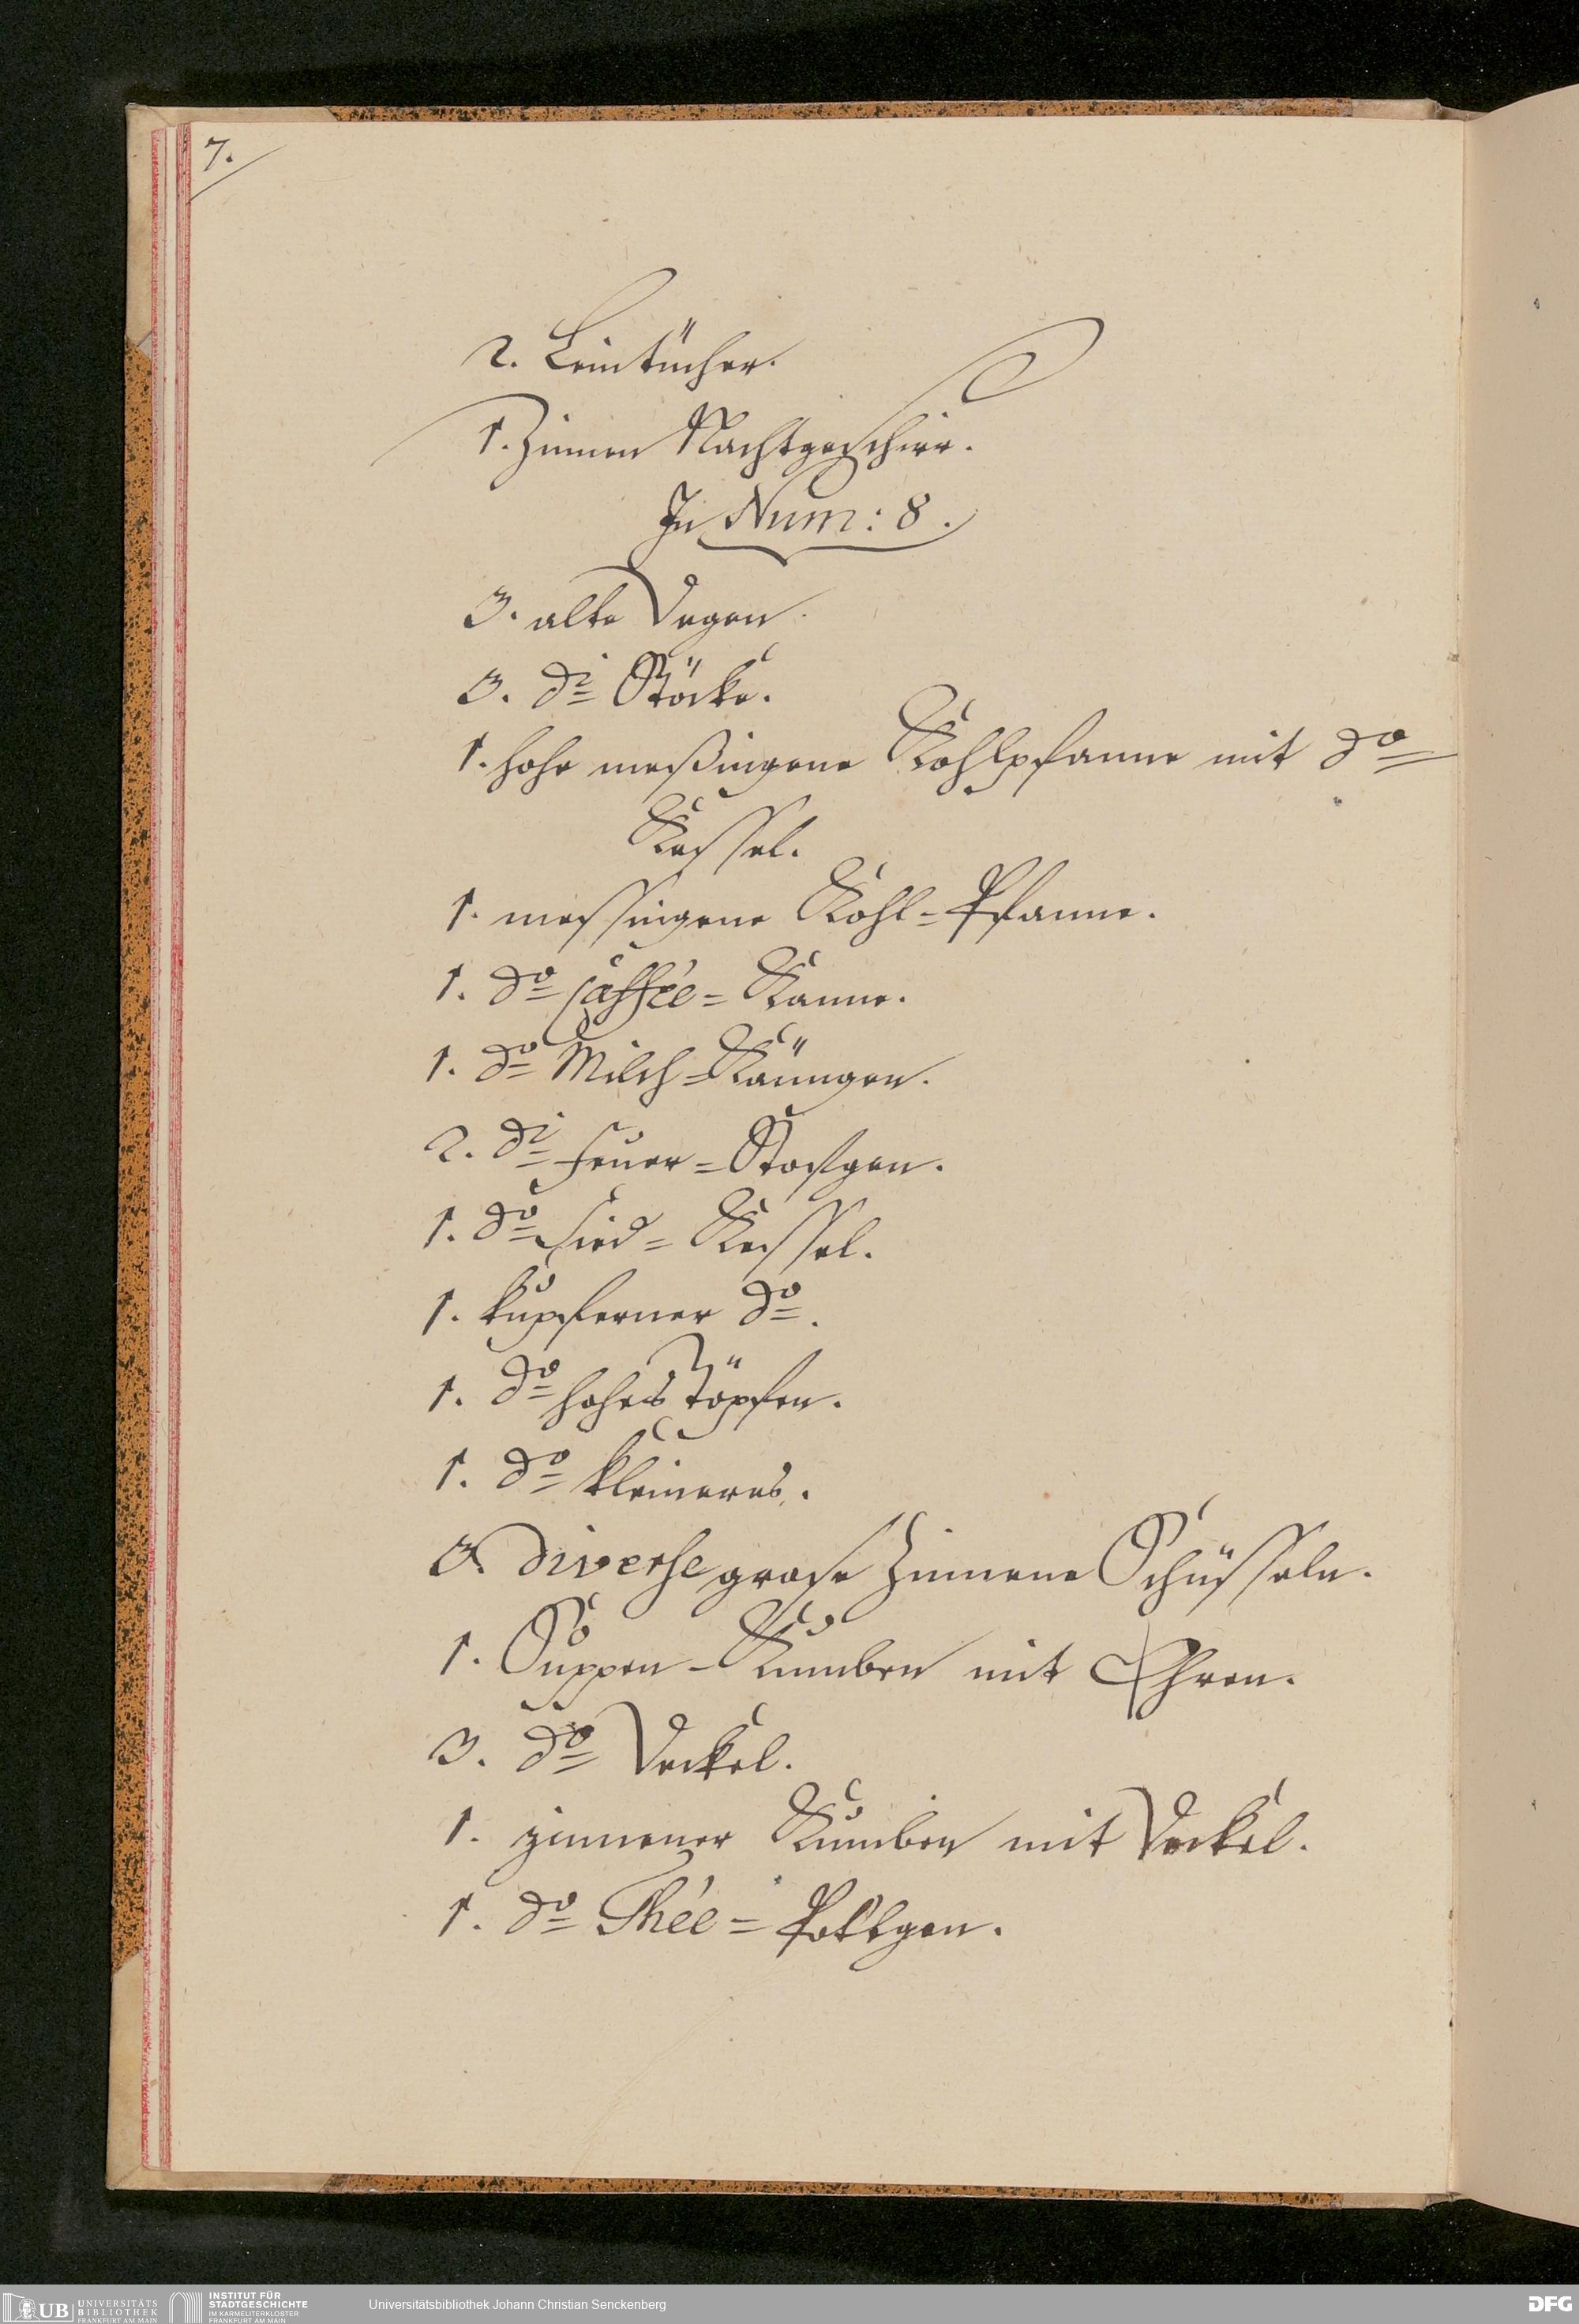 7.
2. Leintücher.
1. Zinnen Nachtgeschirr.
In Num: 8.
3. alte Degen.
3. di Stöcke.
1. hohe meßingene Kohlpfanne mit do
Kessel.
1. messingene Kohl-Pfanne.
1. do Caffée-Kanne.
1. do Milch-Känngen.
2. di Feuer-
1. do Sied-Kessel.
1. kupferner do.
1. do hohes Töpfen.
1. do kleineres.
3. diverse grose Zinnene Schüsseln.
1. Suppen-Kumben mit Ohren.
3. do Deckel.
1. zinnener Kumben mit Deckel.
1. do Thée-Pottgen.
UB UNIVERSITÄTS
BIBLIOTHEK
FRANKFURT AM MAIN
INSTITUT FÜR
STADTGESCHICHTE
IM KARMELITERKLOSTER
FRANKFURT AM MAIN
Universitätsbibliothek Johann Christian Senckenberg
DFG